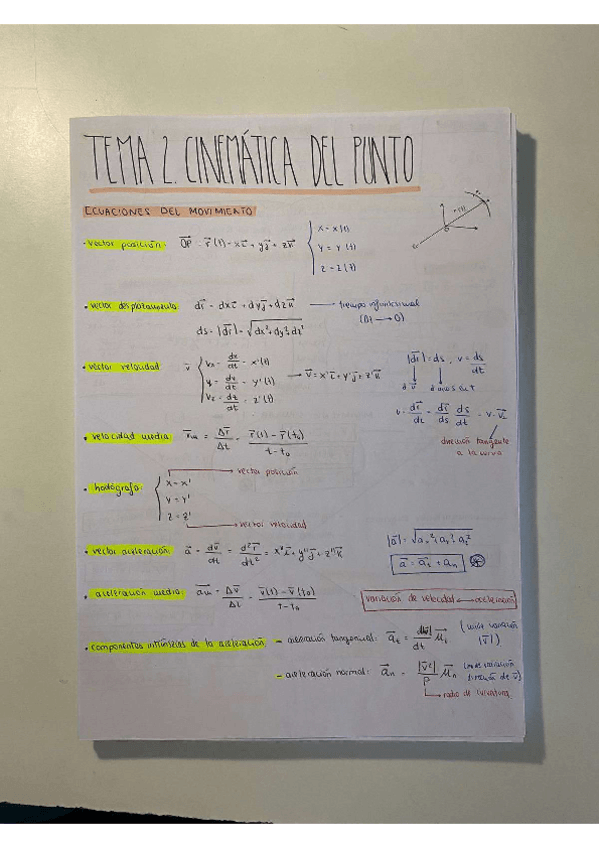 TEMA 2. CINEMÁTICA DEL PUNTO
ECUACIONES DEL MOVIMIENTO
- vector posición: OP⃗ = r⃗(t) = xi⃗ + yj⃗ + zk⃗ { x = x(t)
y = y(t)
z = z(t)
r(t)
• vector desplazamiento: dr⃗ = dxi⃗ + dyj⃗ + dzk⃗ → tiempo infinitesimal
(Δt → 0)
ds = |dr⃗| = √dx²+dy²+dz²
• vector velocidad: v⃗ { vx = dx/dt = x'(t)
y = dy/dt = y'(t)
vz = dz/dt = z'(t)
→ v⃗ = x'i⃗ + y'j⃗ + z'k⃗
|dr⃗| = ds, v = ds/dt
v = dr⃗/dt = dr⃗/ds ds/dt = v·
dirección tangente
a la curva
• velocidad media: v⃗m = Δr⃗/Δt = r⃗(t) - r⃗(t₀)/t - t₀
• hodógrafa: { x = x'
y = y'
z = z'
→ vector posición
→ vector velocidad
• vector aceleración: a⃗ = dv⃗/dt = d²r⃗/dt² = x''i⃗ + y''j⃗ + z''k⃗
a⃗ = a⃗t + a⃗n
• aceleración media: a⃗m = Δv⃗/Δt = v⃗(t) - v⃗(t₀)/t - t₀
variación de velocidad → aceleración
• componentes intrínsecas de la aceleración - aceleración tangencial: a⃗t = d|v⃗|/dt u⃗t (mide variación
|v⃗|)
- aceleración normal: a⃗n = |v⃗²|/ρ u⃗n (mide variación
dirección de v⃗)
→ radio de curvatura